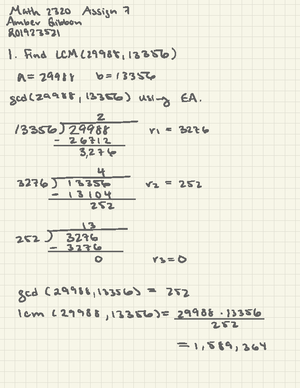 Math 2320 Assign 7
Amber Gibbon
R01923521
1. Find LCM(29988, 13356)
a = 29988 b = 13356
gcd(29988, 13356) using EA.
2
13356 ) 29988 r1 = 3276
- 26712
3,276
4
3276 ) 13356 r2 = 252
- 13104
252
13
252 ) 3276
- 3276
0 r3 = 0
gcd (29988, 13356) = 252
lcm (29988, 13356) = 29988 · 13356
252
= 1,589,364